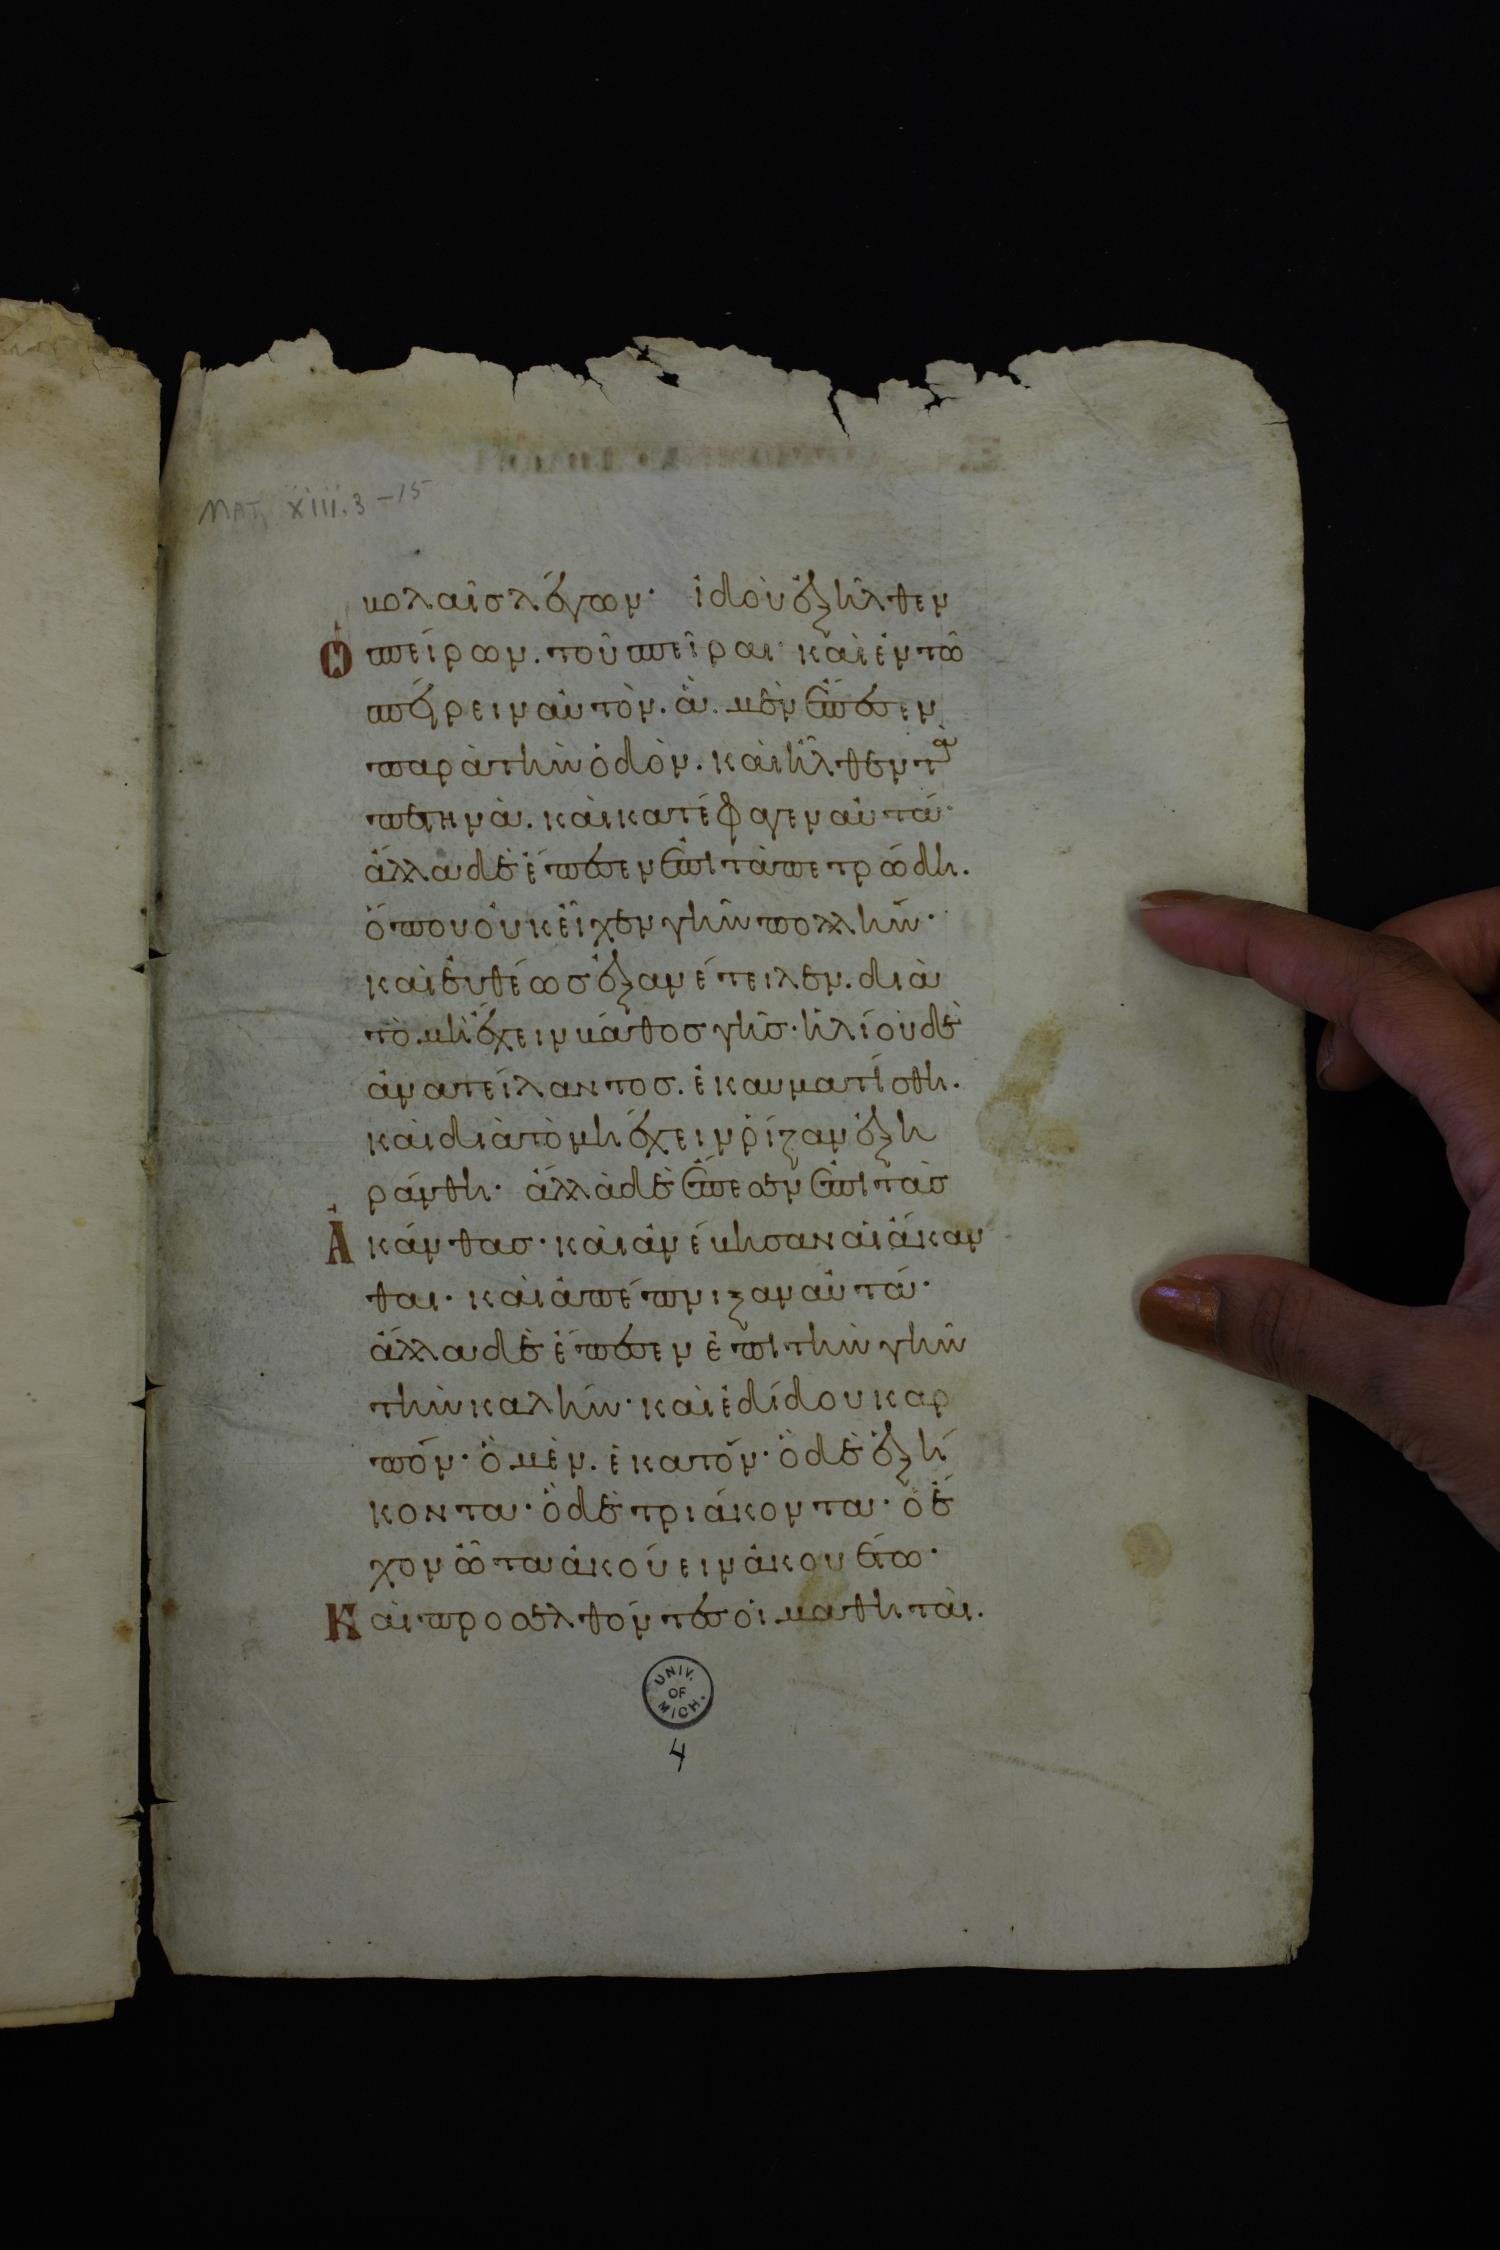 MAT. XIII. 3 – 15
βολαῖς λέγων· ἰδοὺ ἐξῆλθεν
Ὁ σπείρων. τοῦ σπεῖραι· καὶ ἐν τῶ
σπείρειν αὐτὸν. ἃ μὲν ἔπεσεν
παρὰ τὴν ὁδὸν. καὶ ἦλθεν τὰ
πετηνὰ. καὶ κατέφαγεν αὐτά·
ἄλλα δὲ ἔπεσεν ἐπὶ τὰ πετρώδη.
ὅπου οὐκ εἶχεν γῆν πολλήν·
καὶ εὐθέως ἐξανέτειλεν. διὰ
τὸ μὴ ἔχειν βάθος γῆς· ἡλίου δὲ
ἀνατείλαντος. ἐκαυματίσθη.
καὶ διὰ τὸ μὴ ἔχειν ῥίζαν ἐξη
ράνθη· ἄλλα δὲ ἔπεσεν ἐπὶ τὰς
Ἀκάνθας· καὶ ἀνέβησαν αἱ ἄκαν
θαι· καὶ ἀπέπνιξαν αὐτά·
ἄλλα δὲ ἔπεσεν ἐπὶ τὴν γῆν
τὴν καλήν· καὶ ἐδίδου καρ
πόν· ὃ μὲν. ἑκατόν· ὃ δὲ ἐξή
κοντα· ὃ δὲ τριάκοντα· ὁ ἔ
χων ὦτα ἀκούειν ἀκουέτω·
Καὶ προσελθόντες οἱ μαθηταὶ.
UNIV.
OF
MICH.
4